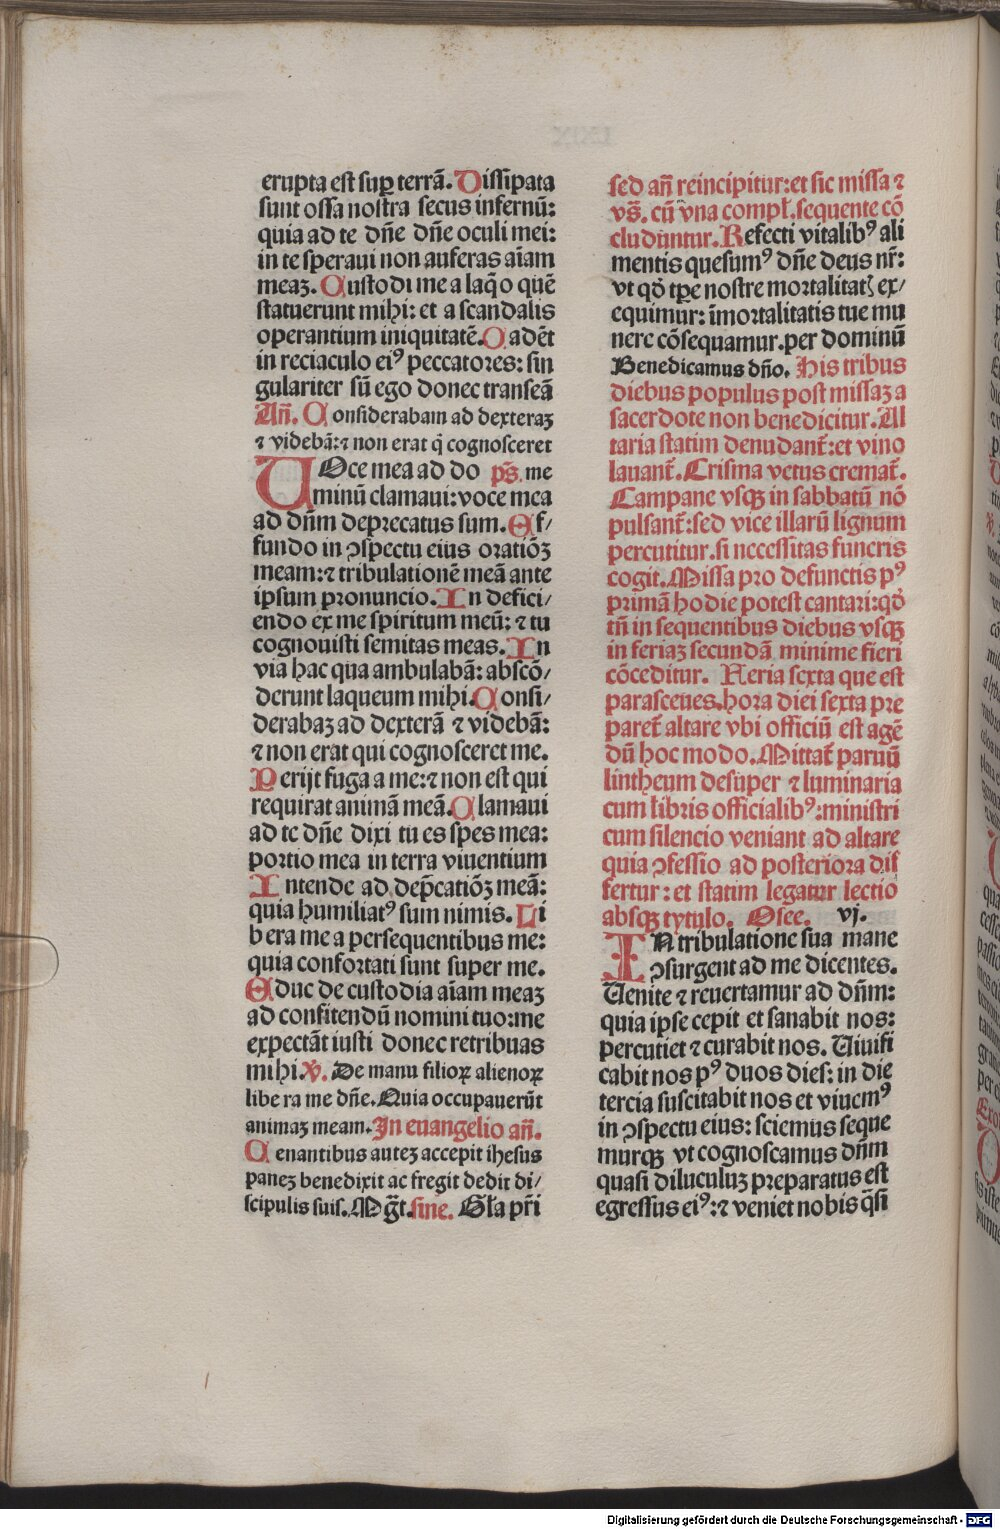 erupta est suꝑ terrā. Dissipata
sunt ossa nostra secus infernū:
quia ad te dn̄e dn̄e oculi mei:
in te speraui non auferas aīam
meaꝫ. Custodi me a laq̄o quē
statuerunt mihi: et a scandalis
operantium iniquitatē. Cadēt
in reciaculo eiꝰ peccatores: sin
gulariter sū ego donec transeā
Añ. Considerabam ad dexteraꝫ
⁊ videbā: ⁊ non erat q̄ cognosceret
VOce mea ad do ps̄. me
minū clamaui: voce mea
ad dn̄m deprecatus sum. Ef/
fundo in ↄspectu eius oratiōꝫ
meam: ⁊ tribulationē meā ante
ipsum pronuncio. In defici/
endo ex me spiritum meū: ⁊ tu
cognouisti semitas meas. In
via hac qua ambulabā: abscō/
derunt laqueum mihi. Consi/
derabaꝫ ad dexterā ⁊ videbā:
⁊ non erat qui cognosceret me.
Perijt fuga a me: ⁊ non est qui
requirat animā meā. Clamaui
ad te dn̄e dixi tu es spes mea:
portio mea in terra viuentium
Intende ad dep̄catiōꝫ meā:
quia humiliatꝰ sum nimis. Li
bera me a persequentibus me:
quia confortati sunt super me.
Educ de custodia aīam meaꝫ
ad confitendū nomini tuo: me
expectāt iusti donec retribuas
mihi. V̄. De manu filioꝝ alienoꝝ
libera me dn̄e. Quia occupauerūt
animaꝫ meam. In euangelio añ.
Cenantibus auteꝫ accepit ihesus
paneꝫ benedixit ac fregit dedit di/
scipulis suis. Mḡt. sine. Gła pr̄i
sed añ reincipitur: et sic missa ⁊
vs̄. cū vna compł. sequente cō
cluduntur. Refecti vitalibꝰ ali
mentis quesumꝰ dn̄e deus nr̄:
vt qd̄ tꝑe nostre mortalitatꝭ ex/
equimur: īmortalitatis tue mu
nere cōsequamur. per dominū
Benedicamus dn̄o. His tribus
diebus populus post missaꝫ a
sacerdote non benedicitur. Al
taria statim denudant̄: et vino
lauant̄. Crisma vetus cremat̄.
Campane vsqꝫ in sabbatū nō
pulsant̄: sed vice illarū lignum
percutitur. si necessitas funeris
cogit. Missa pro defunctis pꝰ
primā hodie potest cantari: qd̄
tn̄ in sequentibus diebus vsqꝫ
in feriaꝫ secundā minime fieri
cōceditur. Feria sexta que est
parasceues. hora diei sexta pre
paret̄ altare vbi officiū est agē
dū hoc modo. Mittat̄ paruū
lintheum desuper ⁊ luminaria
cum libris officialibꝰ: ministri
cum silencio veniant ad altare
quia ↄfessio ad posteriora dif
fertur: et statim legatur lectio
absqꝫ tytulo. Osee. vj.
IN tribulatione sua mane
ↄsurgent ad me dicentes.
Uenite ⁊ reuertamur ad dn̄m:
quia ipse cepit et sanabit nos:
percutiet ⁊ curabit nos. Uiuifi
cabit nos pꝰ duos dies: in die
tercia suscitabit nos et viuemꝰ
in ↄspectu eius: sciemus seque
murqꝫ vt cognoscamus dn̄m
quasi diluculuꝫ preparatus est
egressus eiꝰ: ⁊ veniet nobis q̄si
Digitalisierung gefördert durch die Deutsche Forschungsgemeinschaft - DFG